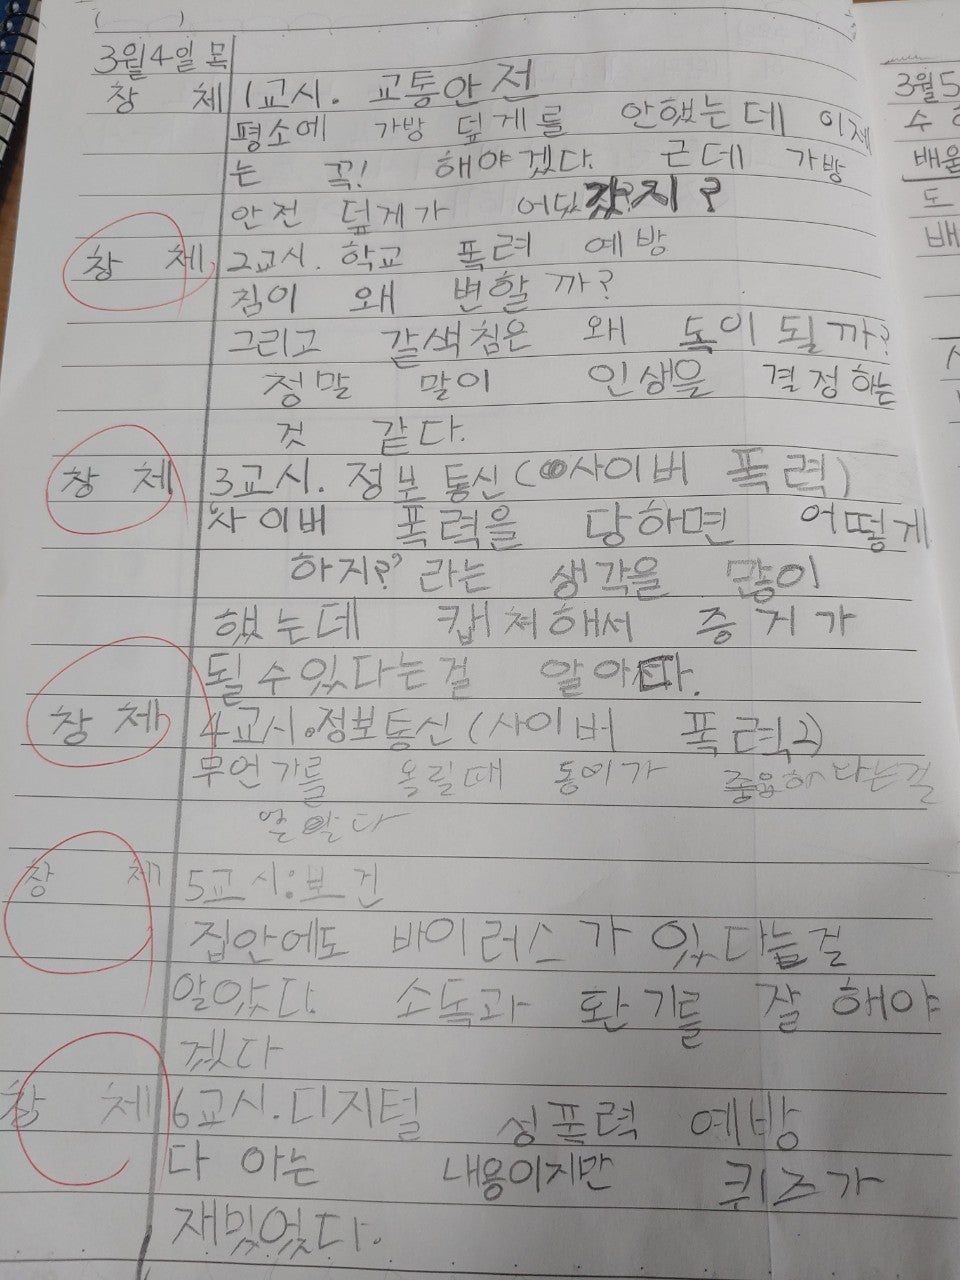 3월4일 목
창 체 1교시. 교통안전
평소에 가방 덮게를 안했는데 이제
는 꼭! 해야겠다. 근데 가방
안전 덮게가 어딨갔지?
창 체 2교시. 학교 폭력 예방
침이 왜 변할까?
그리고 갈색침은 왜 독이 될까?
정말 말이 인생을 결정하는
것 같다.
창 체 3교시. 정보통신(사이버 폭력)
사이버 폭력을 당하면 어떻게
하지?' 라는 생각을 많이
했는데 캡쳐해서 증거가
될수있다는걸 알아따.
창 체 4교시.정보통신(사이버 폭력2)
무언가를 올릴때 동이가 다는걸
알다
창 체 5교시:보건
집안에도 바이러스가 있다는걸
알았다. 소독과 환기를 잘 해야
겠다
창 체 6교시.디지털 성폭력 예방
다 아는 내용이지만 퀴즈가
재밌었다.
3월5
수
배울
도
배